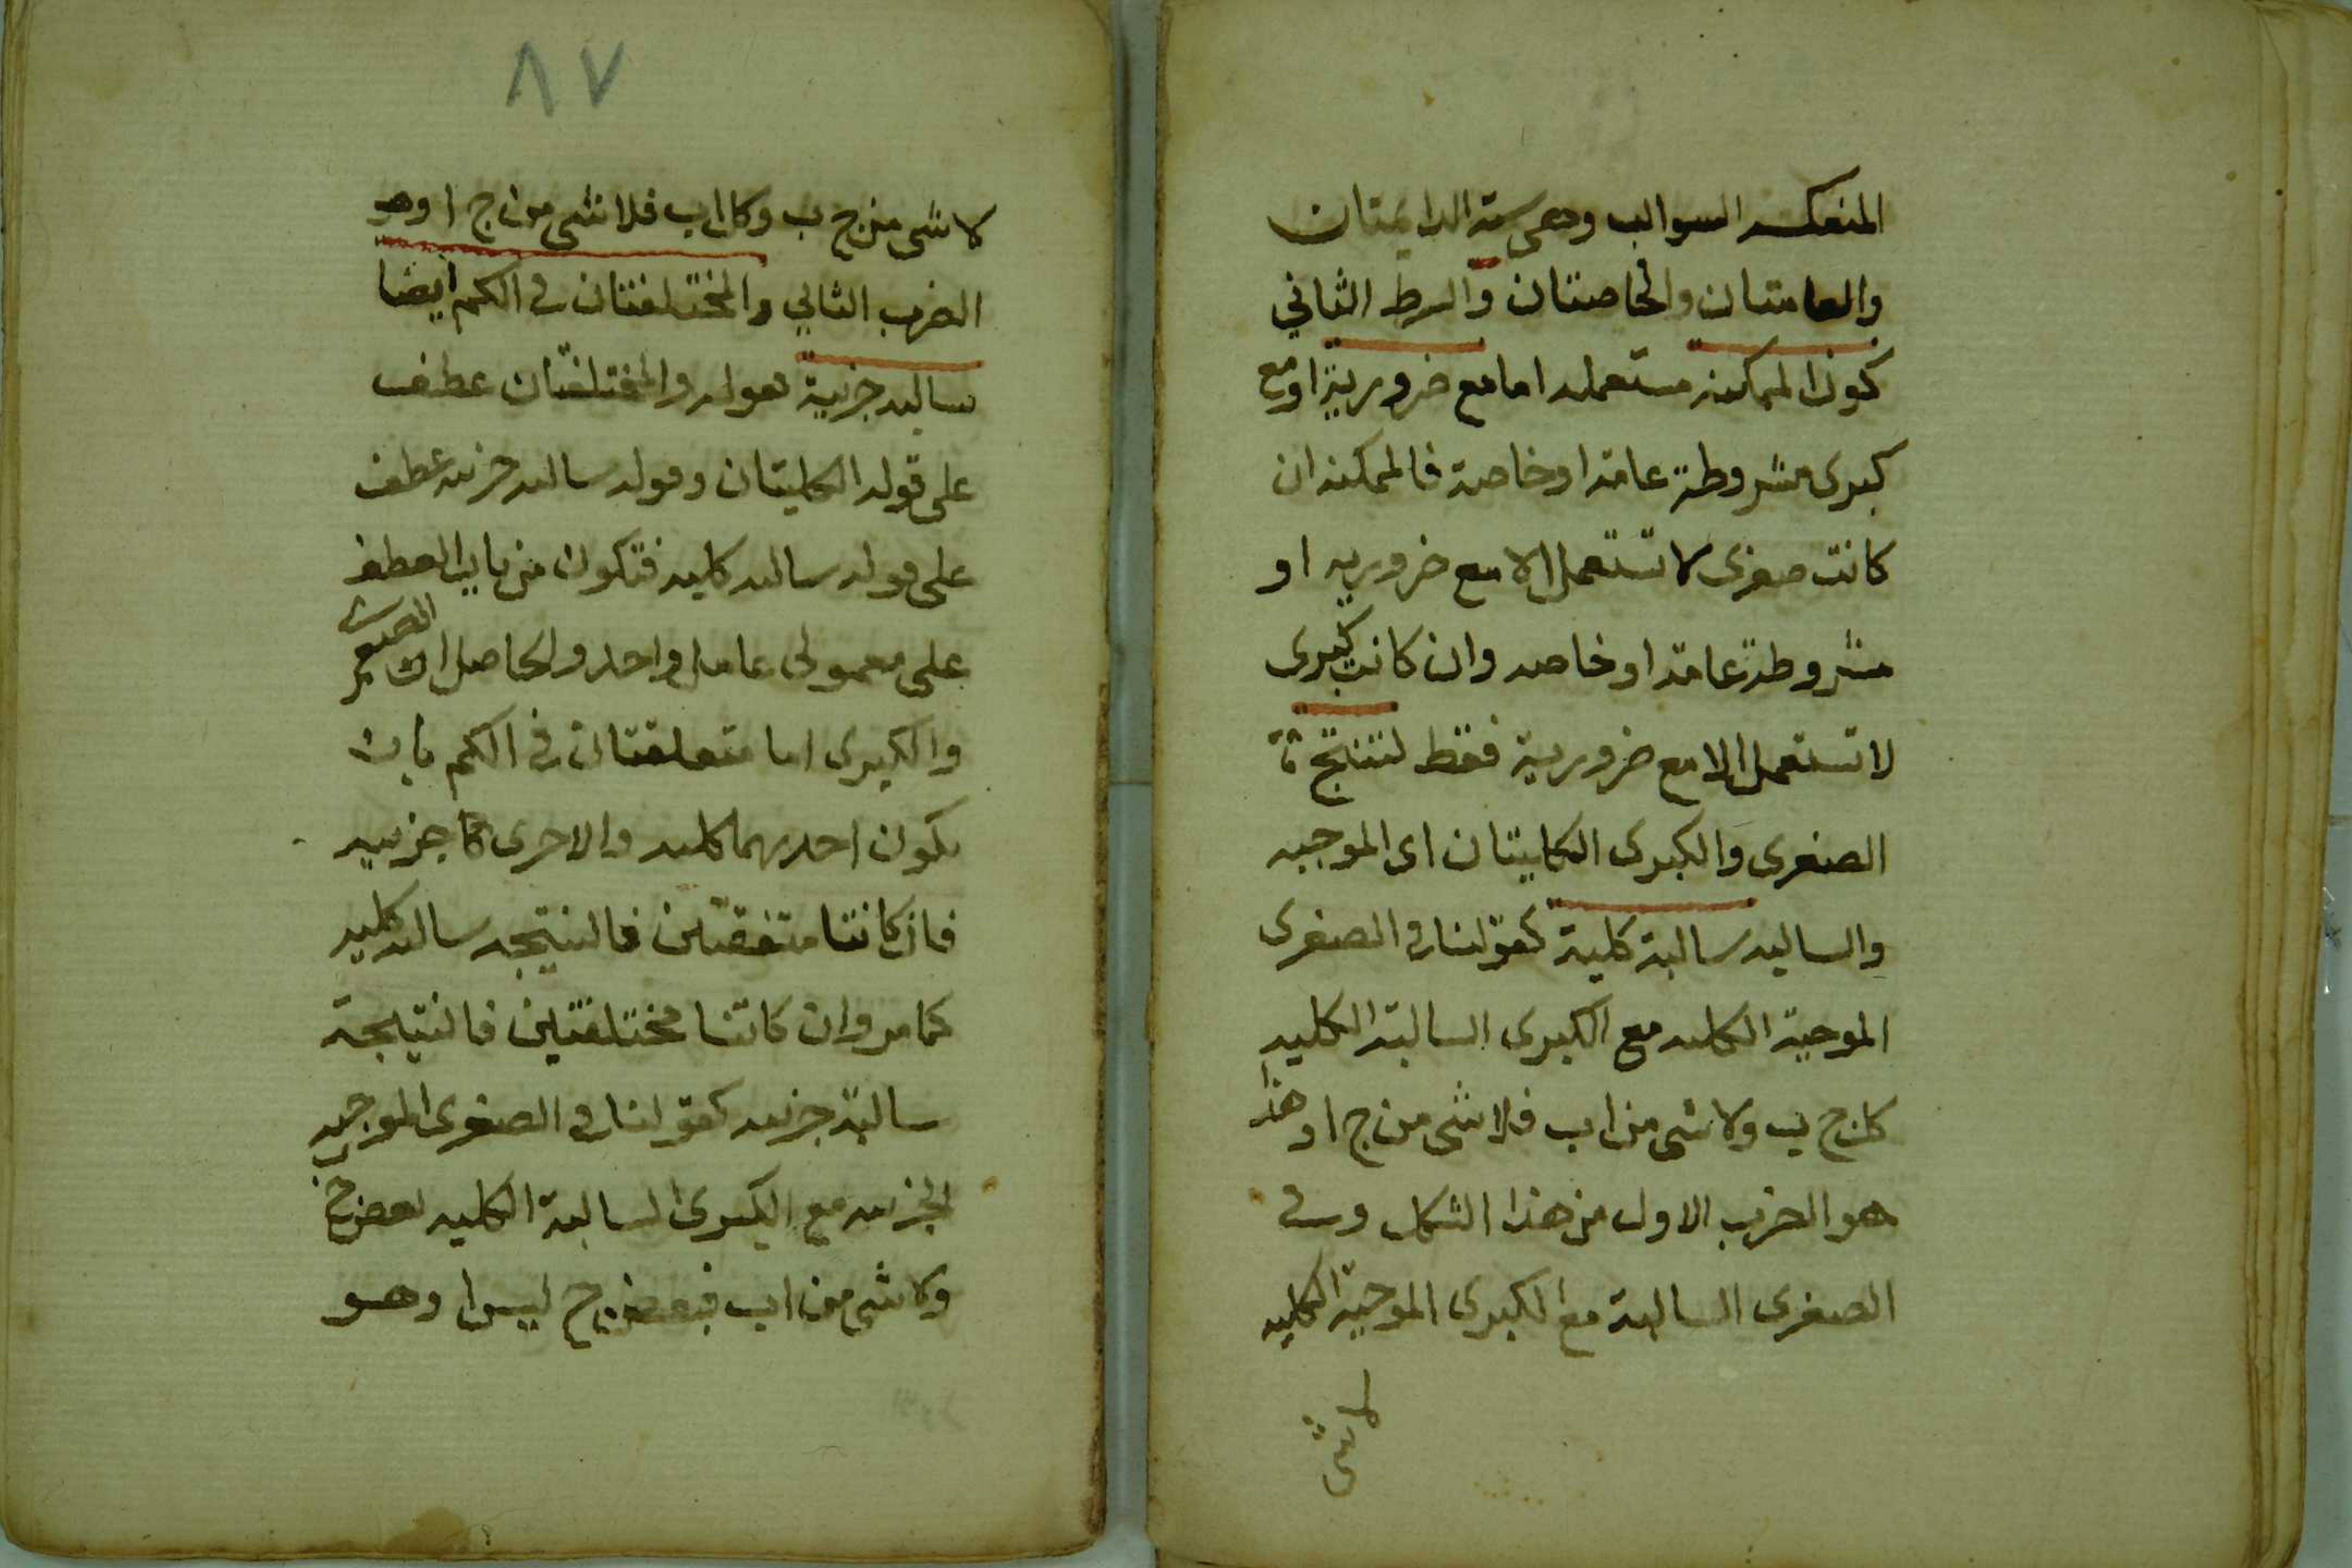 المنعكسة السوالب وهى ستة الدايمتان
والعامتان والخاصتان والشرط الثاني
كون الممكنة مستعملة اما مع ضرورية او مع
كبرى مشروطة عامة او خاصة فالممكنة ان
كانت صغرى لا تستعمل الا مع ضرورية او
مشروطة عامة او خاصة وان كانت كبرى
لا تستعمل الا مع ضرورية فقط لتنتج
الصغرى والكبرى الكليتان اى الموجبه
والسالبه سالبة كلية كقولنا فى الصغرى
الموجبة الكليه مع الكبرى السالبة الكليه
كل ج ب ولا شى من ا ب فلا شى من ج ا وهذا
هو الضرب الاول من هذا الشكل وفى
الصغرى السالبة مع الكبرى الموجبة الكليه
لا شى
٨٧
لا شى من ج ب وكل ا ب فلا شى من ج ا وهو
الضرب الثاني والمختلفتان فى الكم ايضا
سالبه جزيية قوله والمختلفتان عطف
على قوله الكليتان وقوله سالبه جزييه عطف
على قوله سالبه كليه فتكون من باب العطف
على معمولى عامل واحد والحاصل ان الصغرى
والكبرى اما فى الكم بان
يكون احديهما كليه والاخرى جزييه
فان كانتا متفقتين فالنتيجه سالبه كليه
كما مر وان كانتا مختلفتين فالنتيجة
سالبة جزييه كقولنا فى الصغرى الموجبه
الجزييه مع الكبرى السالبة الكليه بعض ج ب
ولا شى من ا ب فبعض ج ليس ا وهو